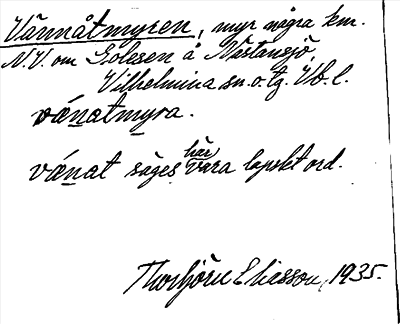 Vännåtmyren, myr några km.
N.V. om Golesen å Nästansjö,
Vilhelmina sn. o. tg. Vb. l.
vánatmyra.
vánat säges här vara lapskt ord.
Thorbjörn Eliasson, 1935.